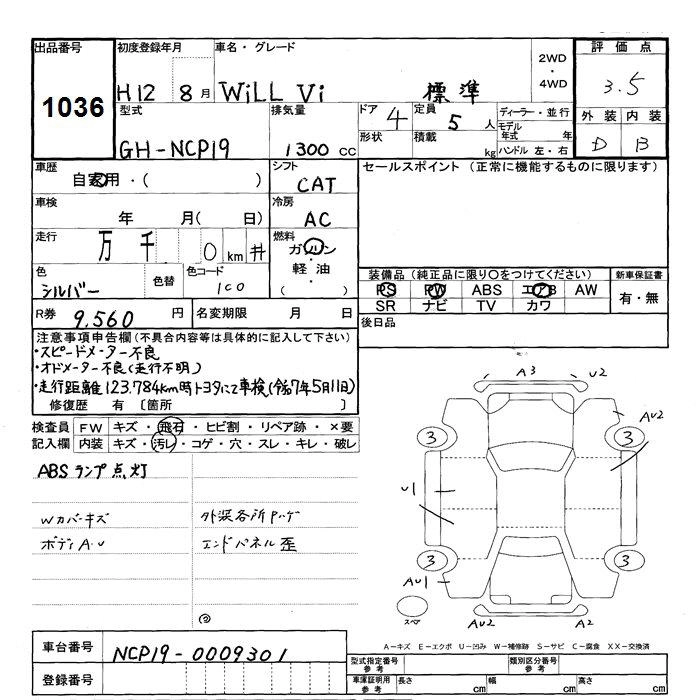 出品番号
1036
初度登録年月
H12 8月
車名・グレード
WiLL Vi 標準
2WD
・
4WD
評価点
3.5
型式
GH-NCP19
排気量
1300 cc
ドア
4
形状
定員
5 人
積載
kg
ディーラー・並行
モデル年式 年
ハンドル 左・右
外装 内装
D B
車歴
自家用・( )
シフト
CAT
セールスポイント (正常に機能するものに限ります)
車検
年 月( 日)
冷房
AC
走行
万 千 0 km #
燃料
ガソリン
・
軽油
( )
色
シルバー
色替
色コード
1C0
装備品 (純正品に限り○をつけてください)
PS PW ABS エアB AW
SR ナビ TV カワ
新車保証書
有・無
R券
9,560 円
名変期限 月 日
後日品
注意事項申告欄 (不具合内容等は具体的に記入して下さい)
・スピードメーター不良
・オドメーター不良(走行不明)
・走行距離123.784km時トヨタにて車検(令和7年5月11日)
修復歴 有 〔箇所 〕
検査員記入欄
FW キズ・飛石・ヒビ割・リペア跡・×要
内装 キズ・汚レ・コゲ・穴・スレ・キレ・破レ
ABSランプ点灯
Wカバーキズ
外装各所Pハゲ
ボディA・U
エンドパネル歪
A3
U2
AU2
3
3
U1
3
3
AU1
スペア
AU2
A2
A−キズ E−エクボ U−凹み W−補修跡 S−サビ C−腐食 XX−交換済
車台番号
NCP19-0009301
登録番号
型式指定番号
参考
類別区分番号
参考
車庫証明用
参考
長さ cm
幅 cm
高さ cm